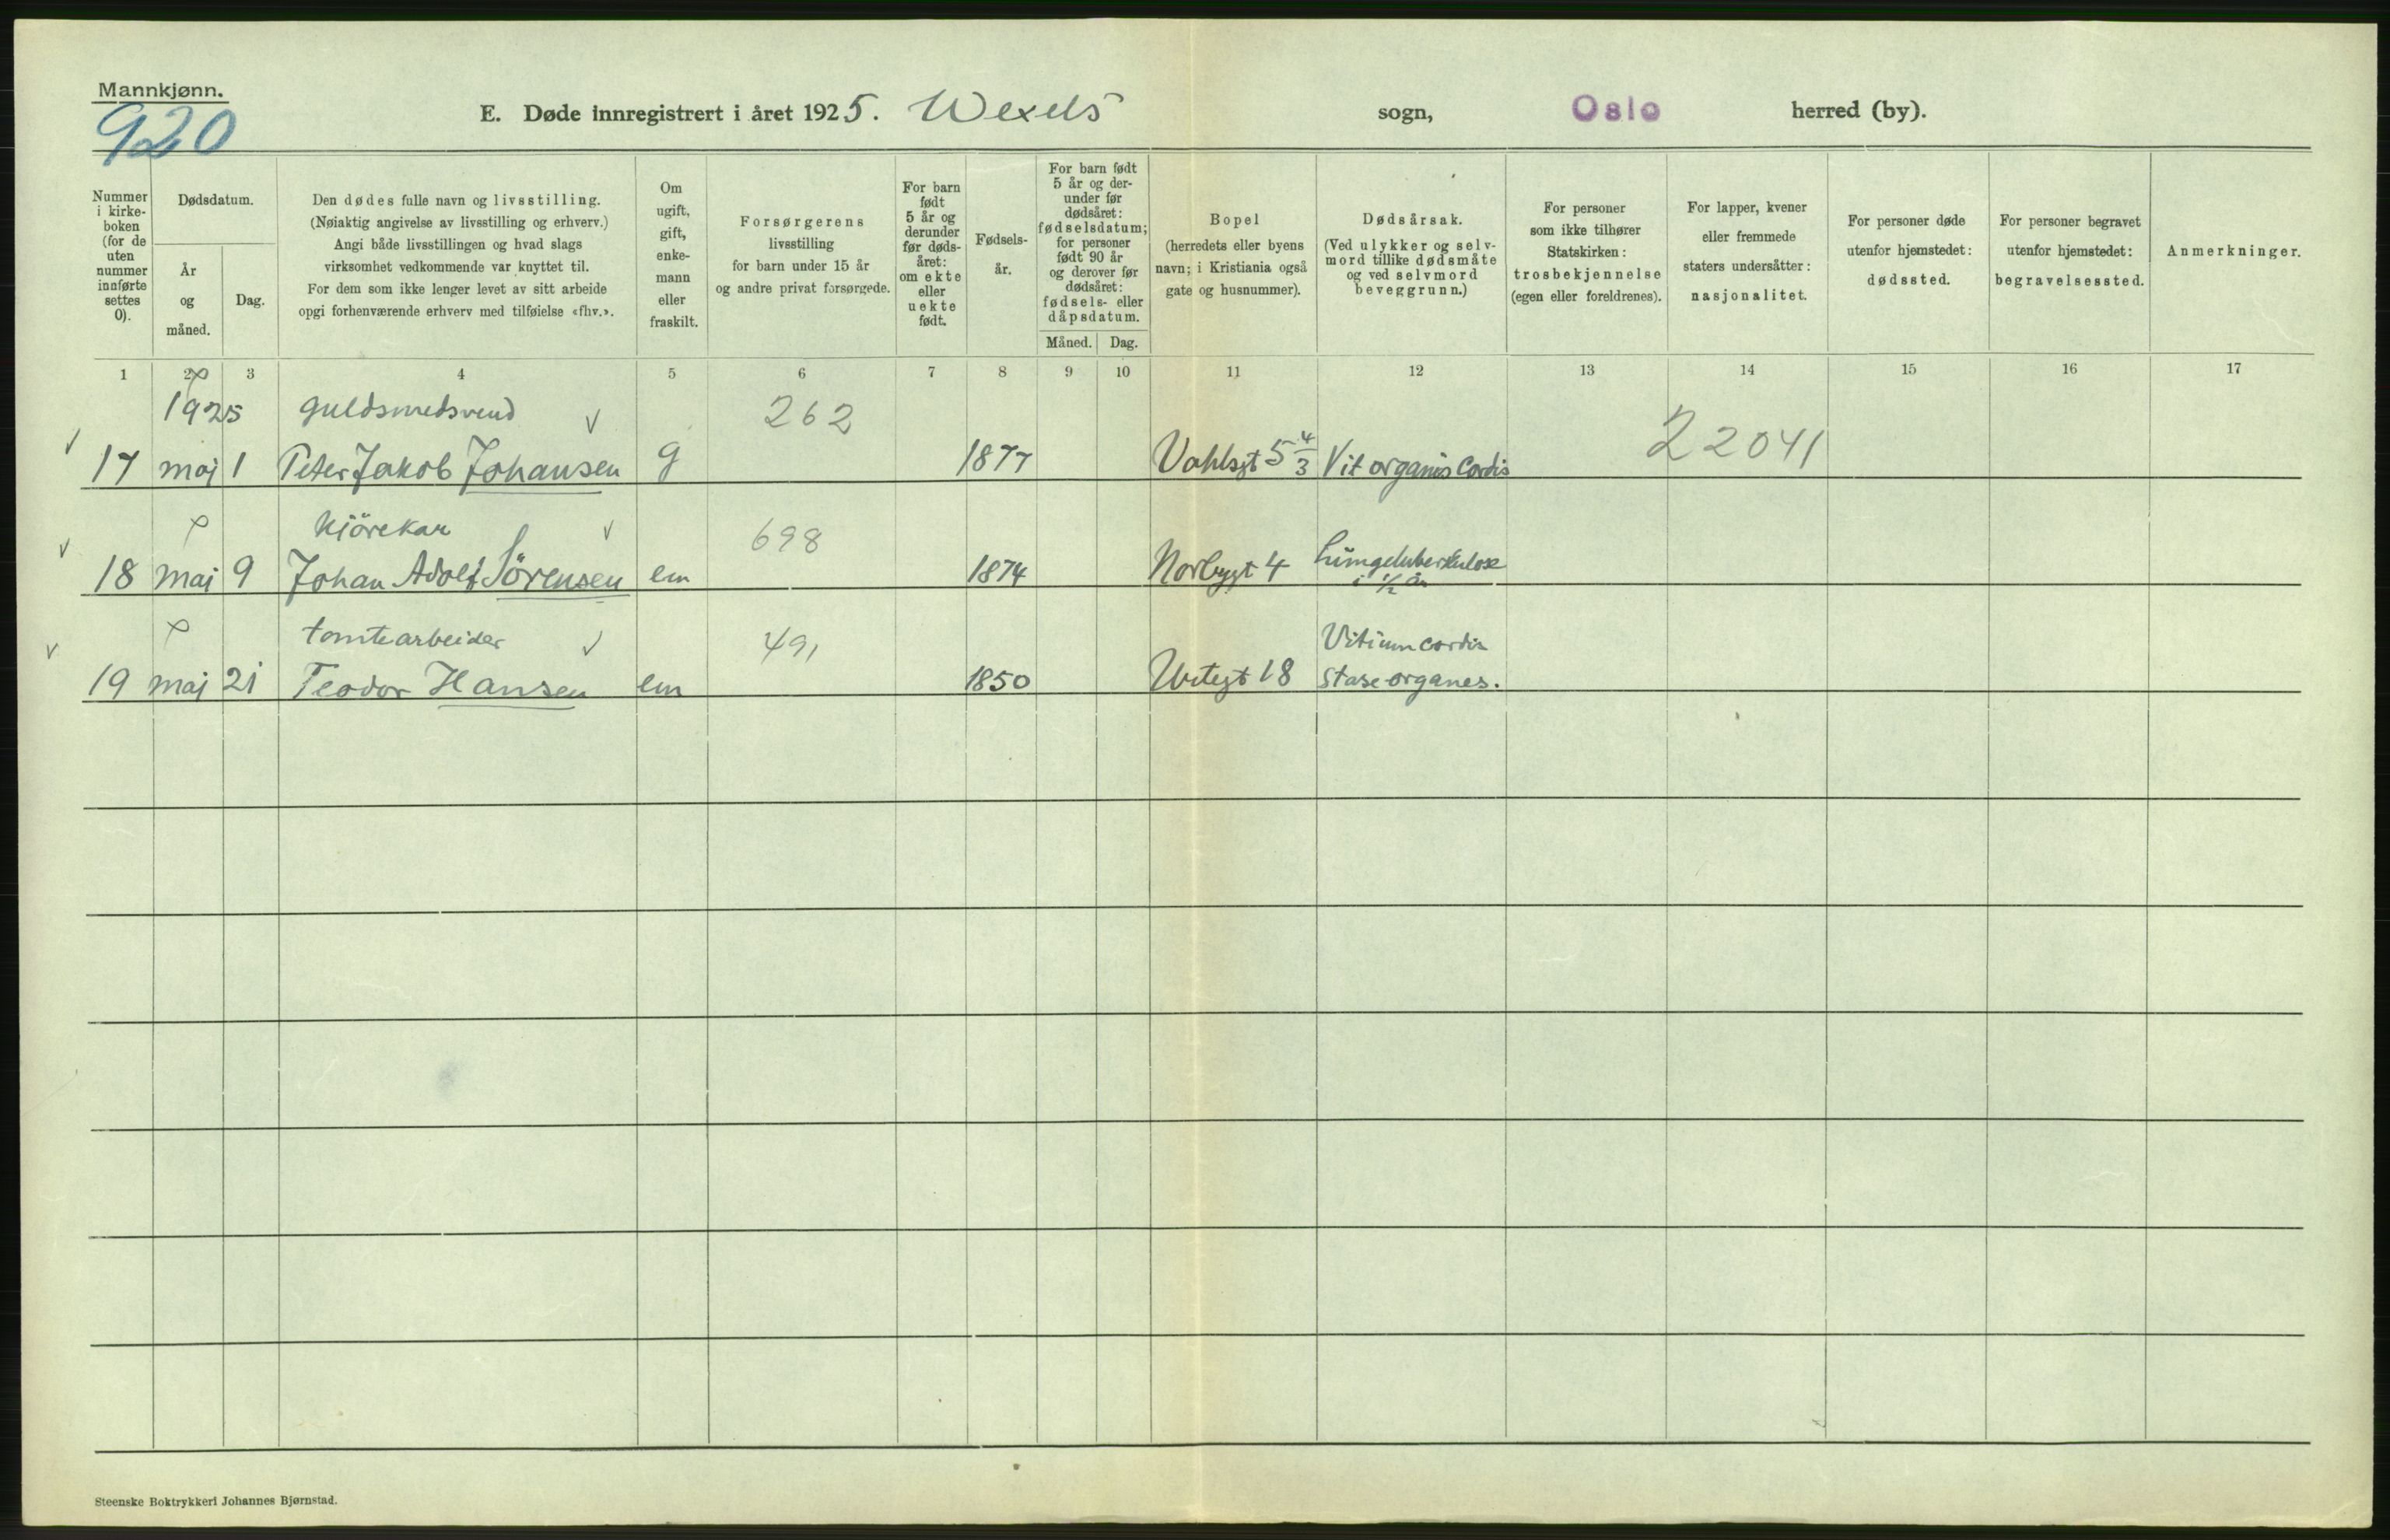 Mannkjønn.
920
E. Døde innregistrert i året 1925. Wexels sogn, Oslo herred (by).
Nummer i kirke- boken (for de uten nummer innførte settes 0).
Dødsdatum.
År og måned.
Dag.
Den dødes fulle navn og livsstilling.
(Nøiaktig angivelse av livsstilling og erhverv.)
Angi både livsstillingen og hvad slags
virksomhet vedkommende var knyttet til.
For dem som ikke lenger levet av sitt arbeide
opgi forhenværende erhverv med tilføielse «fhv.».
Om ugift, gift, enke- mann eller fraskilt.
Forsørgerens
livsstilling
for barn under 15 år
og andre privat forsørgede.
For barn født 5 år og derunder før døds- året: om ekte eller uekte født.
Fødsels- år.
For barn født 5 år og der- under før dødsåret: fødselsdatum; for personer født 90 år og derover før dødsåret: fødsels- eller dåpsdatum.
Måned. Dag.
Bopel
(herredets eller byens
navn; i Kristiania også
gate og husnummer).
Dødsårsak.
(Ved ulykker og selv-
mord tillike dødsmåte
og ved selvmord
beveggrunn.)
For personer
som ikke tilhører
Statskirken:
trosbekjennelse
(egen eller foreldrenes).
For lapper, kvener
eller fremmede
staters undersåtter:
nasjonalitet.
For personer døde
utenfor hjemstedet:
dødssted.
For personer begravet
utenfor hjemstedet:
begravelsessted.
Anmerkninger.
1 2 3 4 5 6 7 8 9 10 11 12 13 14 15 16 17
1925 guldsmedsvend 262
17 maj 1 Peter Jakob Johansen g 1877 Vahlsgt 5 4/3 Vit organis Cordis 22041
Kjörekar 698
18 maj 9 Johan Adolf Sörensen em 1874 Norbygt 4 Lungetuberkulose
i 1/2 år
tomtearbeider 491 Vitium cordis
19 maj 21 Teodor Hansen em 1850 Urtegt 18 Stase organes.
Steenske Boktrykkeri Johannes Bjørnstad.